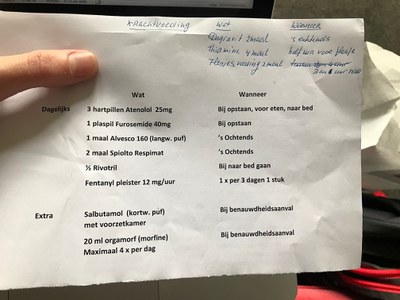 Krachtvoeding Wat Wanneer
2 maal 's ochtends
Thiamine 4 maal half uur voor
Flesjesvoeding 2 maal
Wat Wanneer
Dagelijks 3 hartpillen Atenolol 25mg Bij opstaan, voor eten, naar bed
1 plaspil Furosemide 40mg Bij opstaan
1 maal Alvesco 160 (langw. puf) 's Ochtends
2 maal Spiolto Respimat 's Ochtends
½ Rivotril Bij naar bed gaan
Fentanyl pleister 12 mg/uur 1 x per 3 dagen 1 stuk
Extra Salbutamol (kortw. puf) Bij benauwdheidsaanval
met voorzetkamer
20 ml orgamorf (morfine) Bij benauwdheidsaanval
Maximaal 4 x per dag